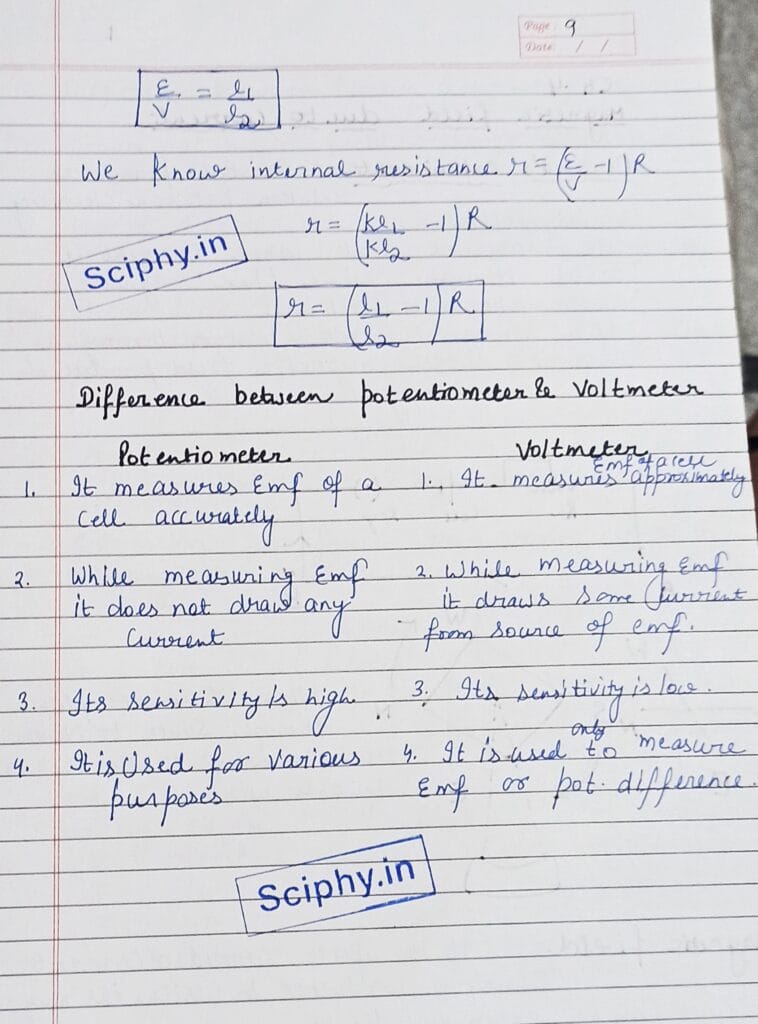 Page 9
Date / /
ε/V = l1/l2
We know internal resistance r = (ε/V - 1) R
r = (kl1/kl2 - 1) R
Sciphy.in
r = (l1/l2 - 1) R
Difference between potentiometer & Voltmeter
Potentiometer
Voltmeter
1. It measures Emf of a
cell accurately
1. It measures Emf of a cell approximately
2. While measuring Emf
it does not draw any
Current
2. While measuring Emf
it draws some Current
from source of emf.
3. Its sensitivity is high.
3. Its sensitivity is low.
4. It is Used for various
purposes
4. It is used only to measure
Emf or pot. difference.
Sciphy.in